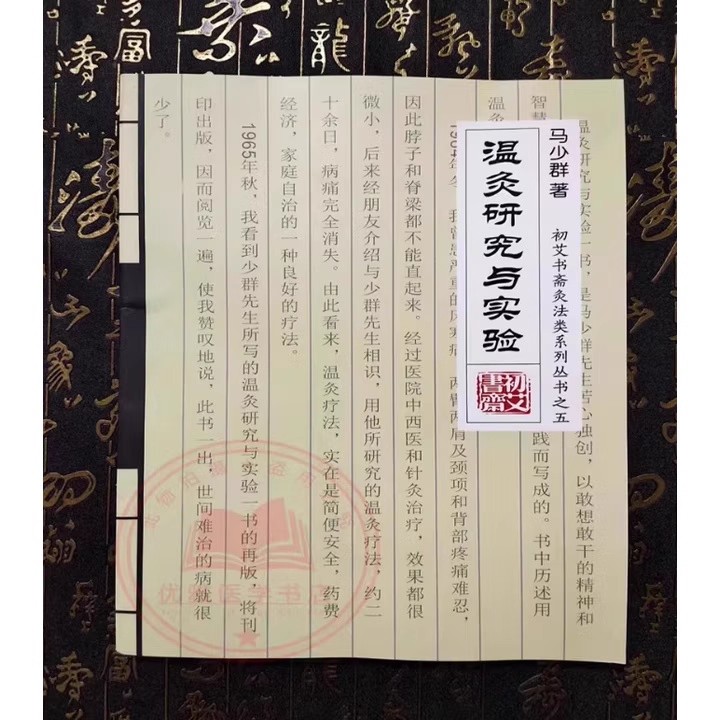 马少群著
温灸研究与实验
初艾书斋灸法类系列丛书之五
初艾書齋
温灸研究与实验一书，是马少群先生苦心独创，以敢想敢干的精神和
智慧
践而写成的。书中历述用
温灸
年冬，我曾患严重的风寒病，两臂两肩及颈项和背部疼痛难忍，
因此脖子和脊梁都不能直起来。经过医院中西医和针灸治疗，效果都很
微小，后来经朋友介绍与少群先生相识，用他所研究的温灸疗法，约二
十余日，病痛完全消失。由此看来，温灸疗法，实在是简便安全，药费
经济，家庭自治的一种良好的疗法。
1965年秋，我看到少群先生所写的温灸研究与实验一书的再版，将刊
印出版，因而阅览一遍，使我赞叹地说，此书一出，世间难治的病就很
少了。
医学书店